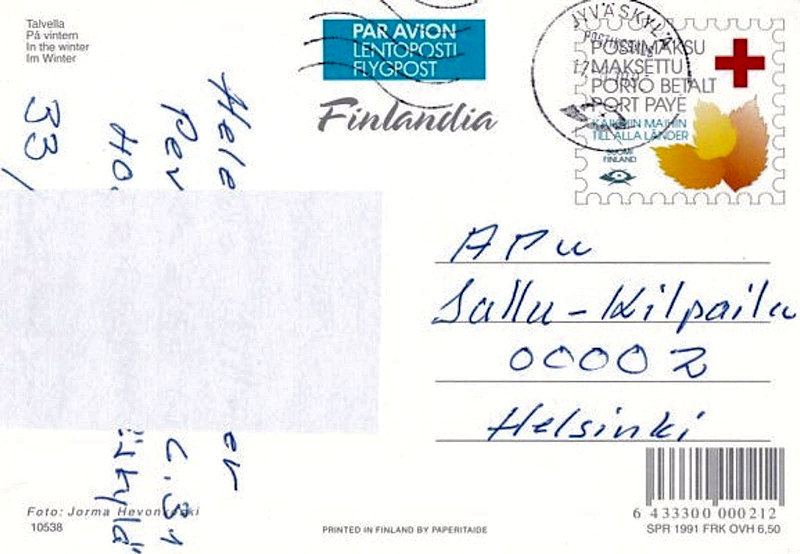 Talvella
På vintern
In the winter
Im Winter
PAR AVION
LENTOPOSTI
FLYGPOST
Finlandia
JYVÄSKYLÄ
POSTIMAKSU
MAKSETTU
PORTO BETALT
PORT PAYÉ
KAIKKIIN MAIHIN
TILL ALLA LÄNDER
SUOMI
FINLAND
Apu
Sallu-Kilpailu
00002
Helsinki
33/
Foto: Jorma
10538
PRINTED IN FINLAND BY PAPERITAIDE
6 433300 000212
SPR 1991 FRK OVH 6,50